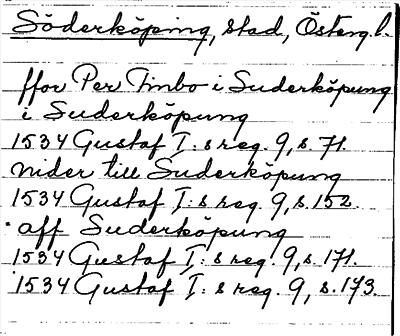 Söderköping, stad, Österg. l.
ffor Per Timbo i Suderköpung
i Suderköpung
1534 Gustaf I: s reg. 9, s. 71.
nider till Suderköpung
1534 Gustaf I: s reg. 9, s. 152.
aff Suderköpung
1534 Gustaf I: s reg. 9, s. 171.
1534 Gustaf I: s reg. 9, s. 173.